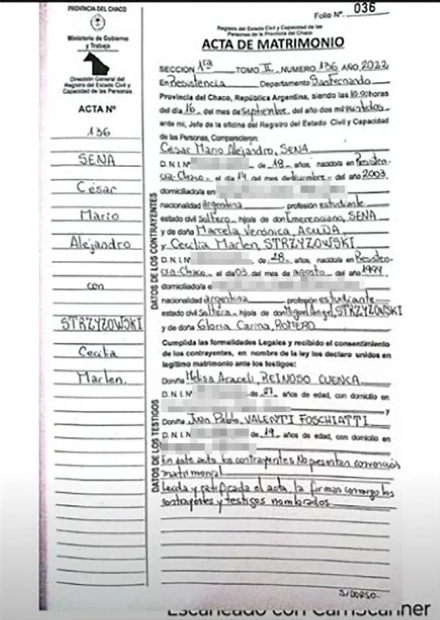 PROVINCIA DEL CHACO
Ministerio de Gobierno
y Trabajo
Dirección General del
Registro del Estado Civil y
Capacidad de las Personas
ACTA Nº
136
SENA
César
Mario
Alejandro
con
STRZYZOWSKI
Cecilia
Marlen.
Folio Nº. 036
Registro del Estado Civil y Capacidad de las
Personas de la Provincia del Chaco
ACTA DE MATRIMONIO
SECCION 1ra TOMO II NUMERO 136 AÑO 2022
En Resistencia Departamento San Fernando
Provincia del Chaco, República Argentina, siendo las horas
del día 16 del mes de septiembre del año dos mil
ante mí, Jefe de la oficina del Registro del Estado Civil y Capacidad
de las Personas, Comparecieron:
César Mario Alejandro, SENA
D.N.I. Nº de 18 años, nacido/a en Resisten-
cia-Chaco el día del mes de del año 2003
domiciliado/a en
nacionalidad argentina profesión estudiante
estado civil Soltero hijo/a de don Emerenciano, SENA
y de doña Marcela Verónica, ACUÑA
y Cecilia Marlen, STRZYZOWSKI
D.N.I. Nº de 28 años, nacido/a en Resisten-
cia-Chaco el día 03 del mes de agosto del año 1994
domiciliado/a en
nacionalidad argentina profesión estudiante
estado civil Soltera hijo/a de don Miguel Angel, STRZYZOWSKI
y de doña Gloria Carina, ROMERO
Cumplida las formalidades Legales y recibido el consentimiento
de los contrayentes, en nombre de la ley los declaro unidos en
legítimo matrimonio ante los testigos:
Don/ña Araceli, REINOSO CUENCA
D.N.I. Nº de años de edad, con domicilio en
y
Don/ña Juan Pablo, VALENTI FOSCHIATTI
D.N.I. Nº de 19 años de edad, con domicilio en
En este acto los contrayentes No presentan convención
matrimonial
Leída y ratificada el acta, la firman conmigo los
contrayentes y testigos nombrados
DATOS DE LOS CONTRAYENTES
DATOS DE LOS TESTIGOS
Escaneado con CamScanner